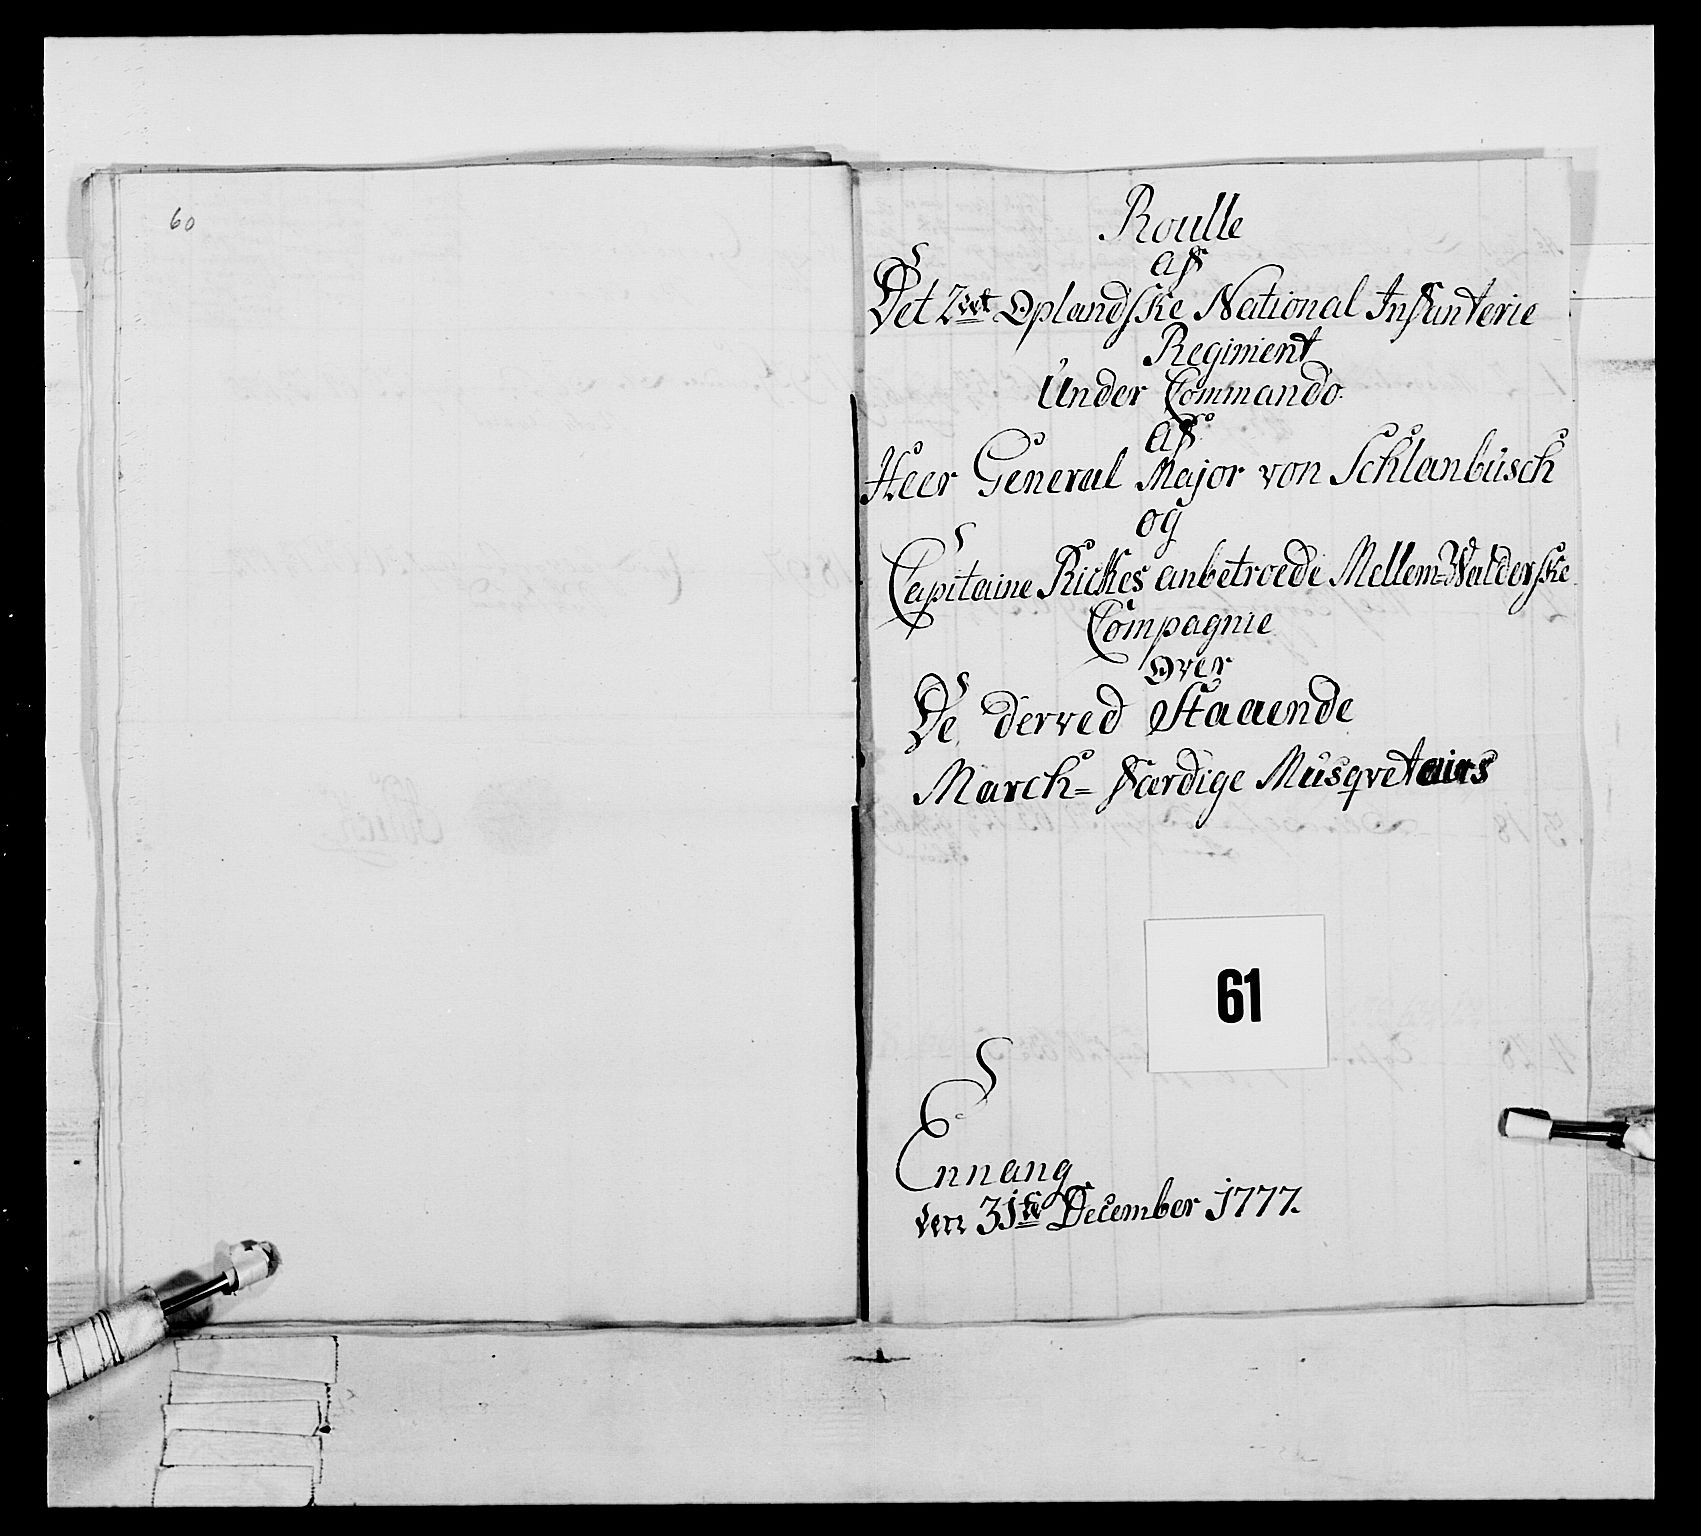 60
Roulle
af
Det 2det Oplandske National Infanterie
Regiment
Under Commando
af
Heer General Major von Schlanbüsch
og
Capitaine Rickes anbetroede Mellem-Walderske
Compagnie
Over
De derved Staaende
March- færdige Müsqvetairs
61
Ennang
den 31te December 1777.